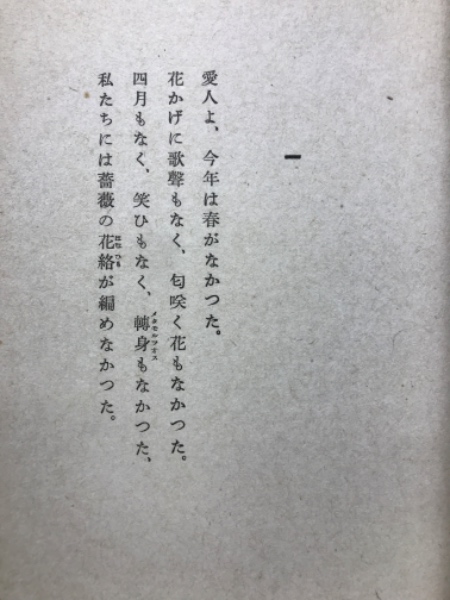 一
愛人よ、今年は春がなかつた。
花かげに歌聲もなく、匂咲く花もなかつた。
四月もなく、笑ひもなく、轉身もなかつた、
メタモルフオス
私たちには薔薇の花絡が編めなかつた。
はなづな